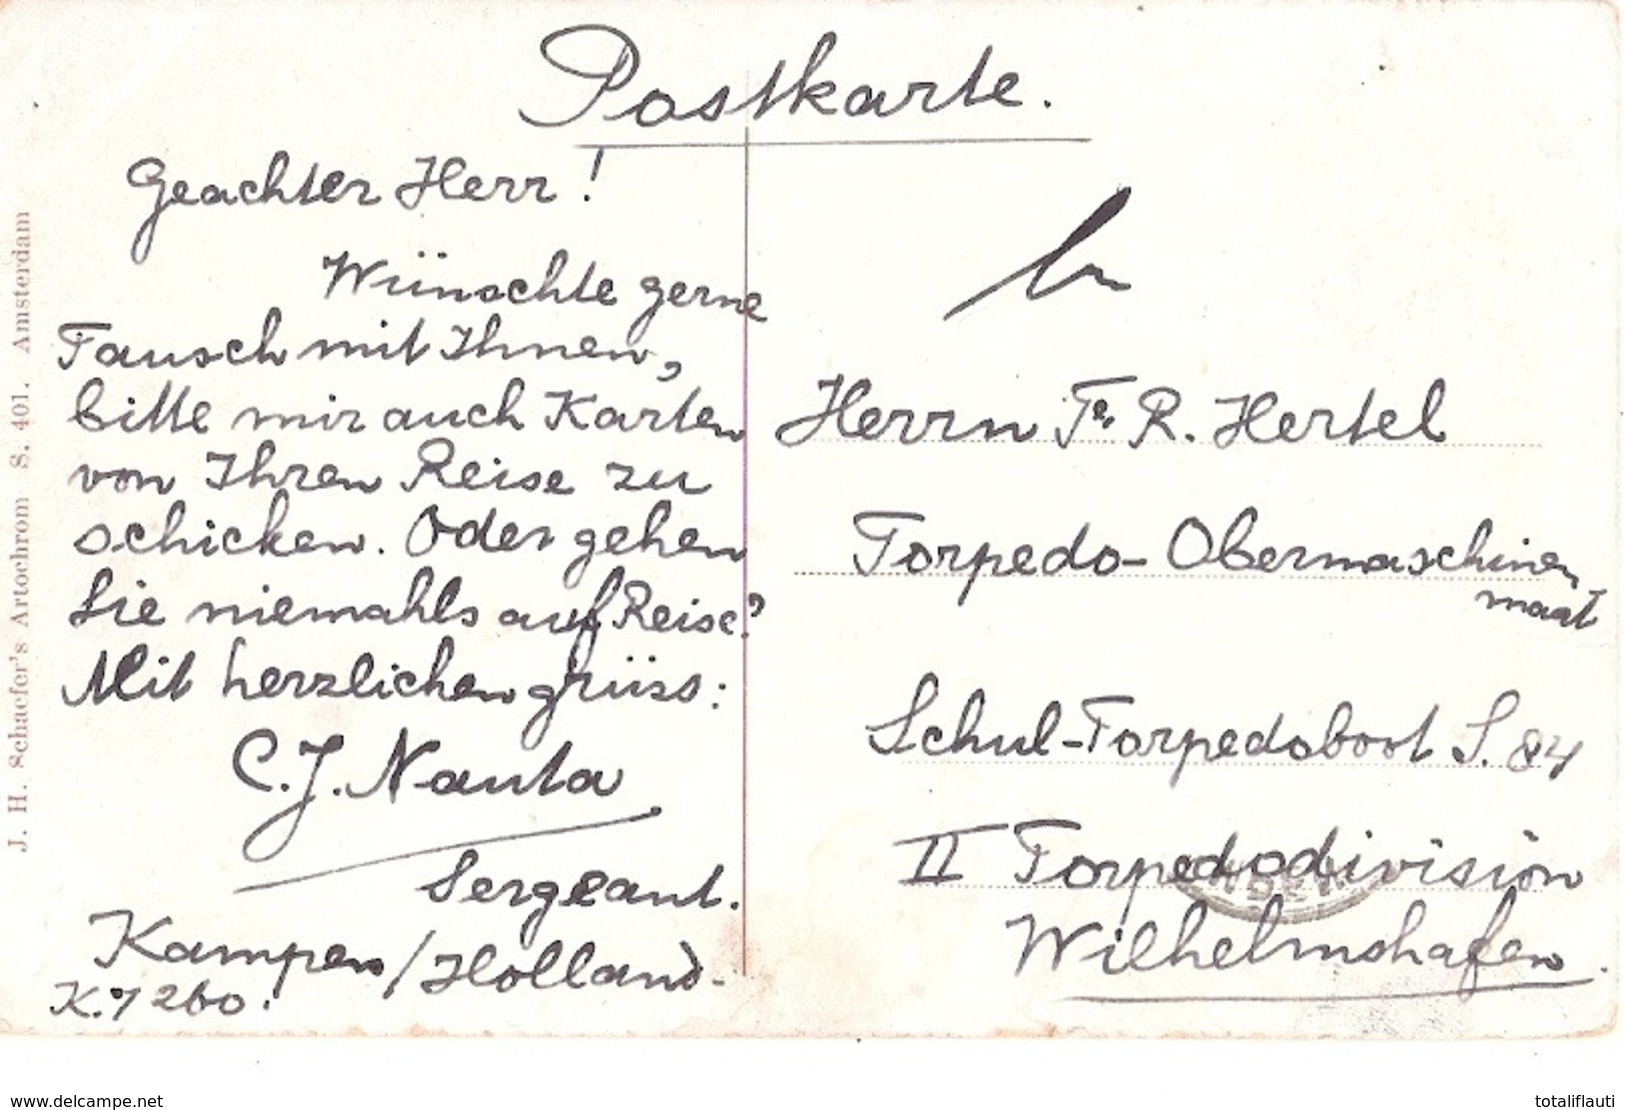 Postkarte.
Geachter Herr!
Wünschte gerne
Tausch mit Ihnen,
bitte mir auch Karten
von Ihren Reise zu
schicken. Oder gehen
Sie niemahls auf Reise?
Mit herzlichen grüss:
C. J. Nauta
Sergeant.
Kampen / Holland.
Herrn Fr. R. Hertel
Torpedo-Obermaschinen
maat
Schul-Torpedoboot S. 84
II Torpedodivision
Wilhelmshafen.
J. H. Schaefer's Artochrom S. 401. Amsterdam
www.delcampe.net
totaliflauti